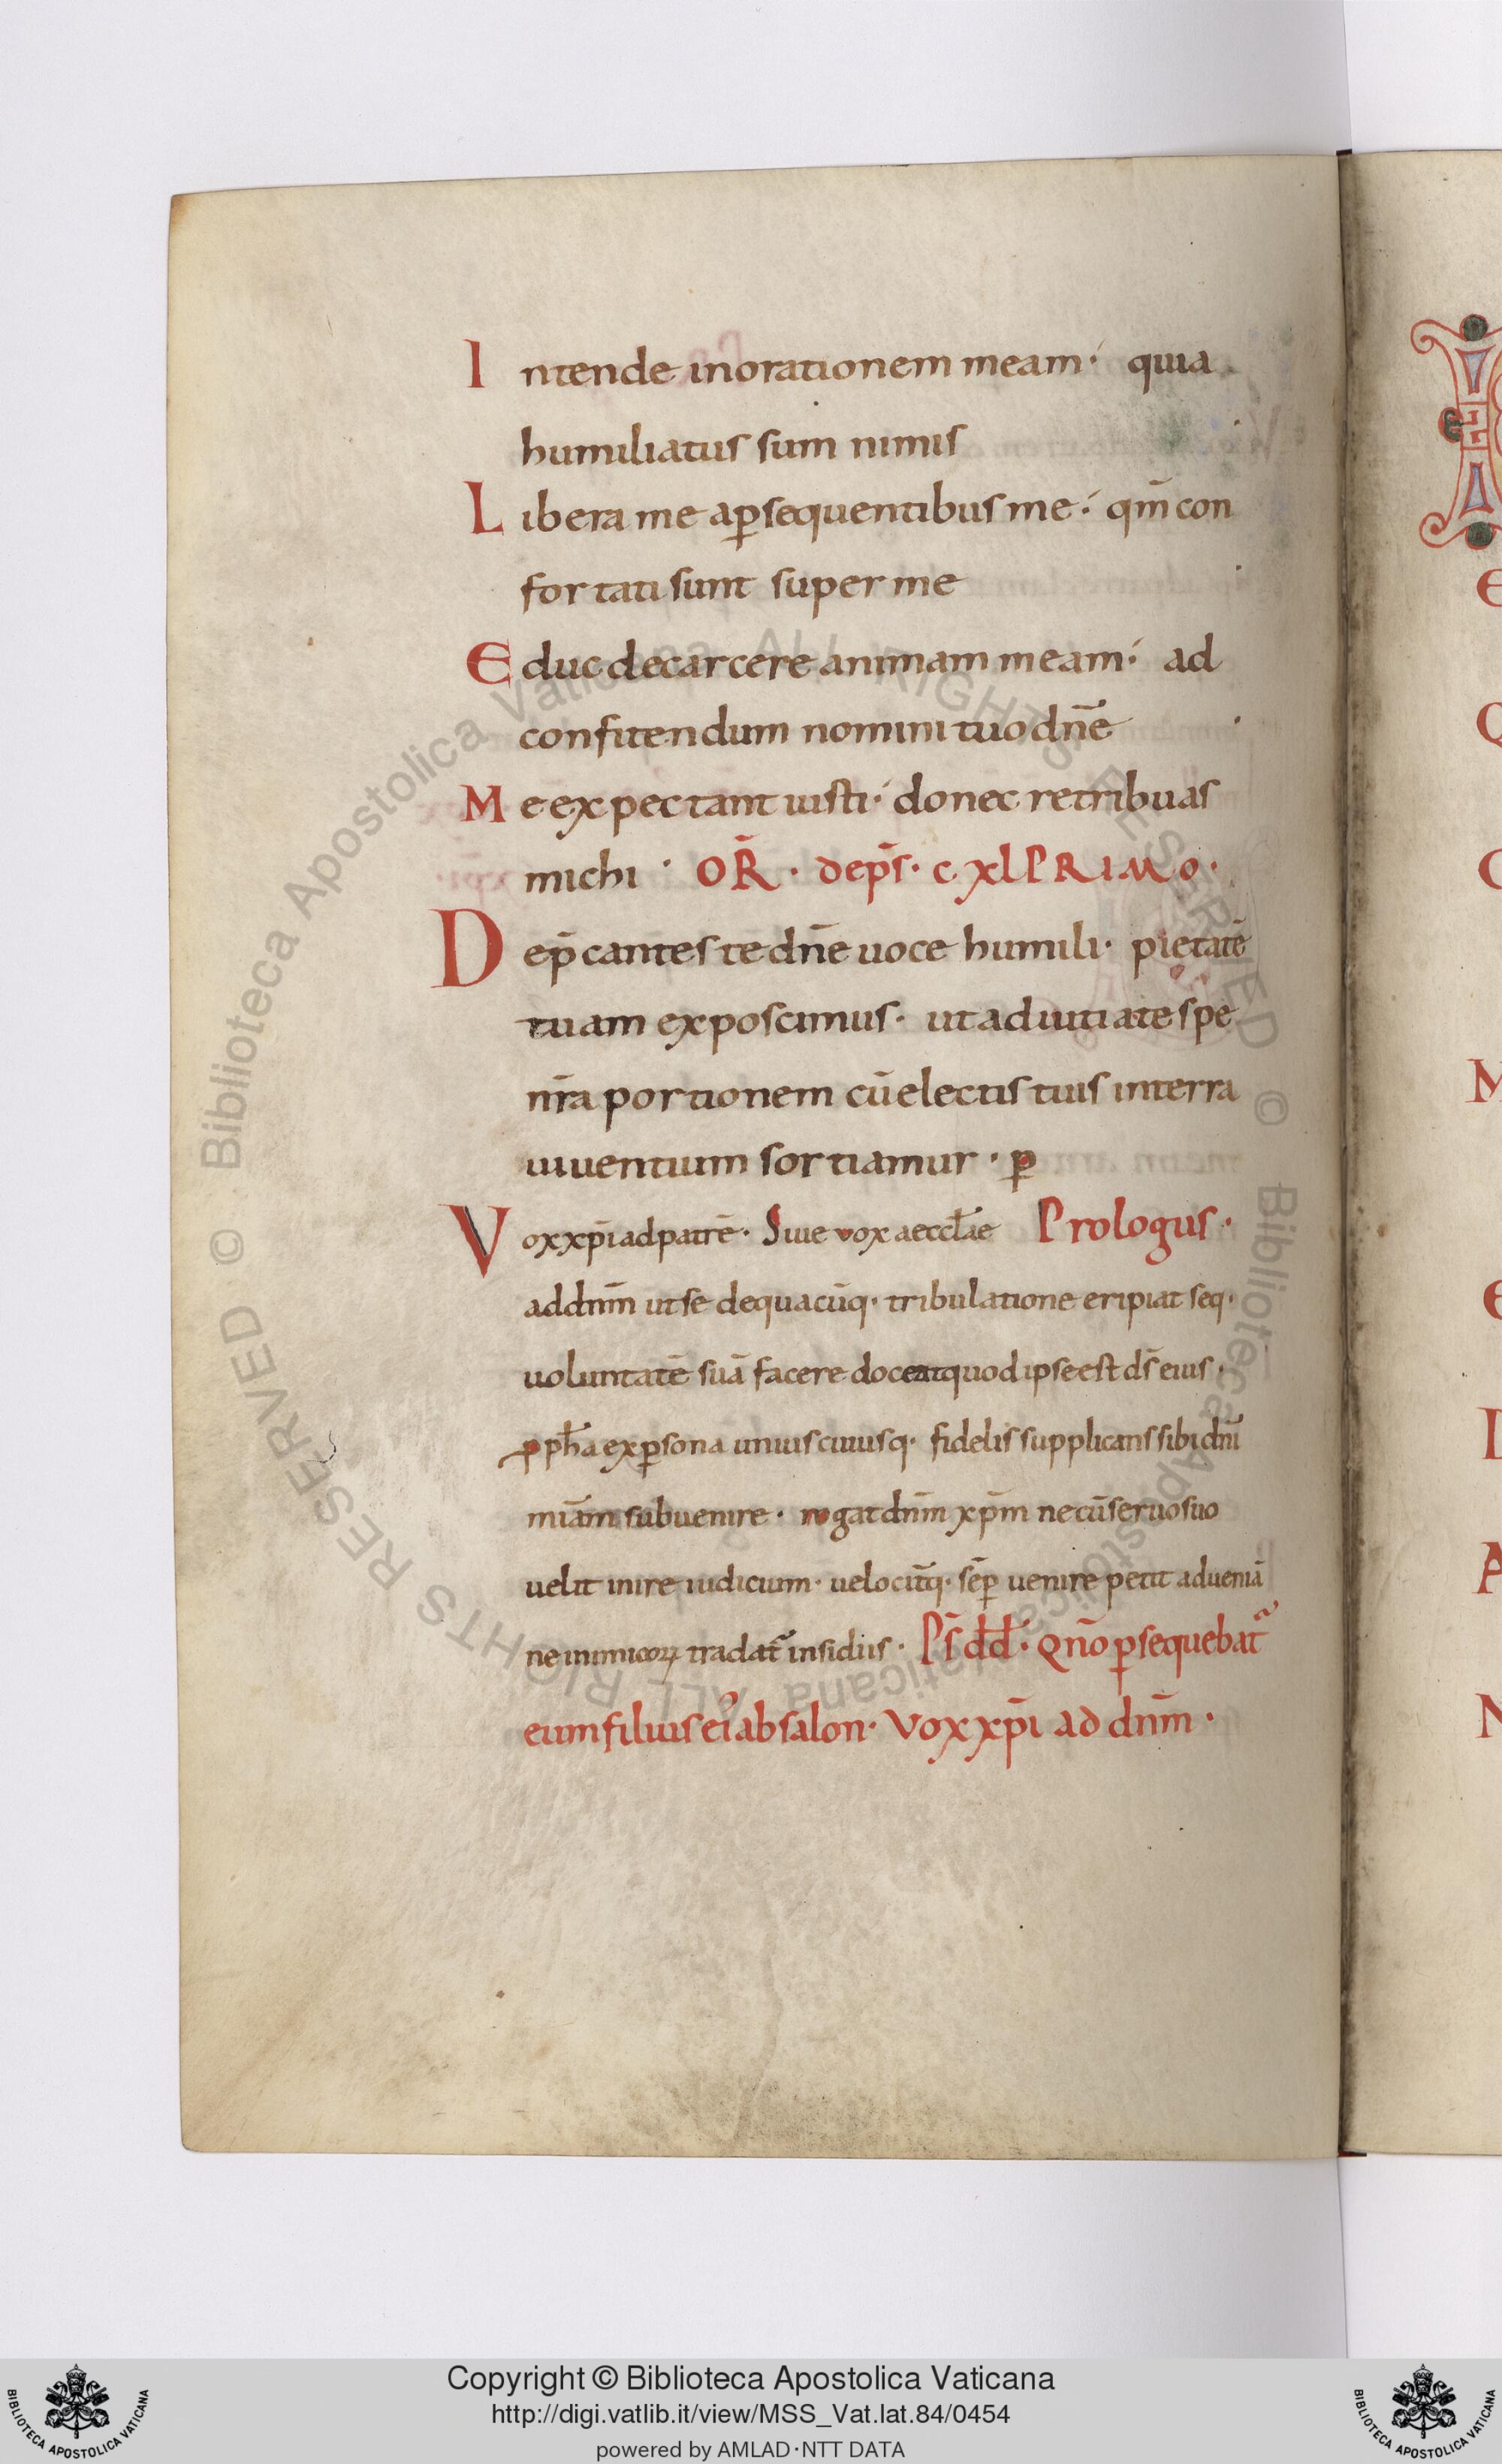 Intende inorationem meam· quia
humiliatus sum nimis
Libera me ap̄sequentibus me· qm̄ con
fortati sunt super me
Educ decarcere animam meam· ad
confitendum nomini tuo dn̄e
Me expectant iusti· donec retribuas
michi · OR̄ · dep̄s · c xl PRIMO ·
Dep̄cantes te dn̄e uoce humili· pietatē
tuam exposcimus· ut adiuti a te spe
nr̄a portionem cū electis tuis interra
uiuentium sortiamur · p̄
Vox xp̄i ad patrē· Siue vox aeccl̄ae Prologus ·
ad dnm̄ ut se dequacūq· tribulatione eripiat seq·
uoluntatē suā facere doceat quod ipse est ds̄ eius ·
ꝓph̄a exp̄sona uniuscuiusq· fidelis supplicans sibi dn̄i
miām subuenire · rogat dnm̄ xp̄m ne cū seruo suo
uelit inire iudicium· uelocit̄q· sēp uenire petit adueniā
ne inimicoꝝ tradat̄ insidiis · Ps̄ dd̄ · Qn̄o p̄sequebat̄
eum filius ei᾽ absalon· Vox xp̄i ad dnm̄ ·
E
Q
C
M
E
D
A
N
© Biblioteca Apostolica Vaticana ALL RIGHTS RESERVED © Biblioteca Apostolica Vaticana ALL RIGHTS RESERVED
Copyright © Biblioteca Apostolica Vaticana
http://digi.vatlib.it/view/MSS_Vat.lat.84/0454
powered by AMLAD·NTT DATA
BIBLIOTECA APOSTOLICA VATICANA
BIBLIOTECA APOSTOLICA VATICANA